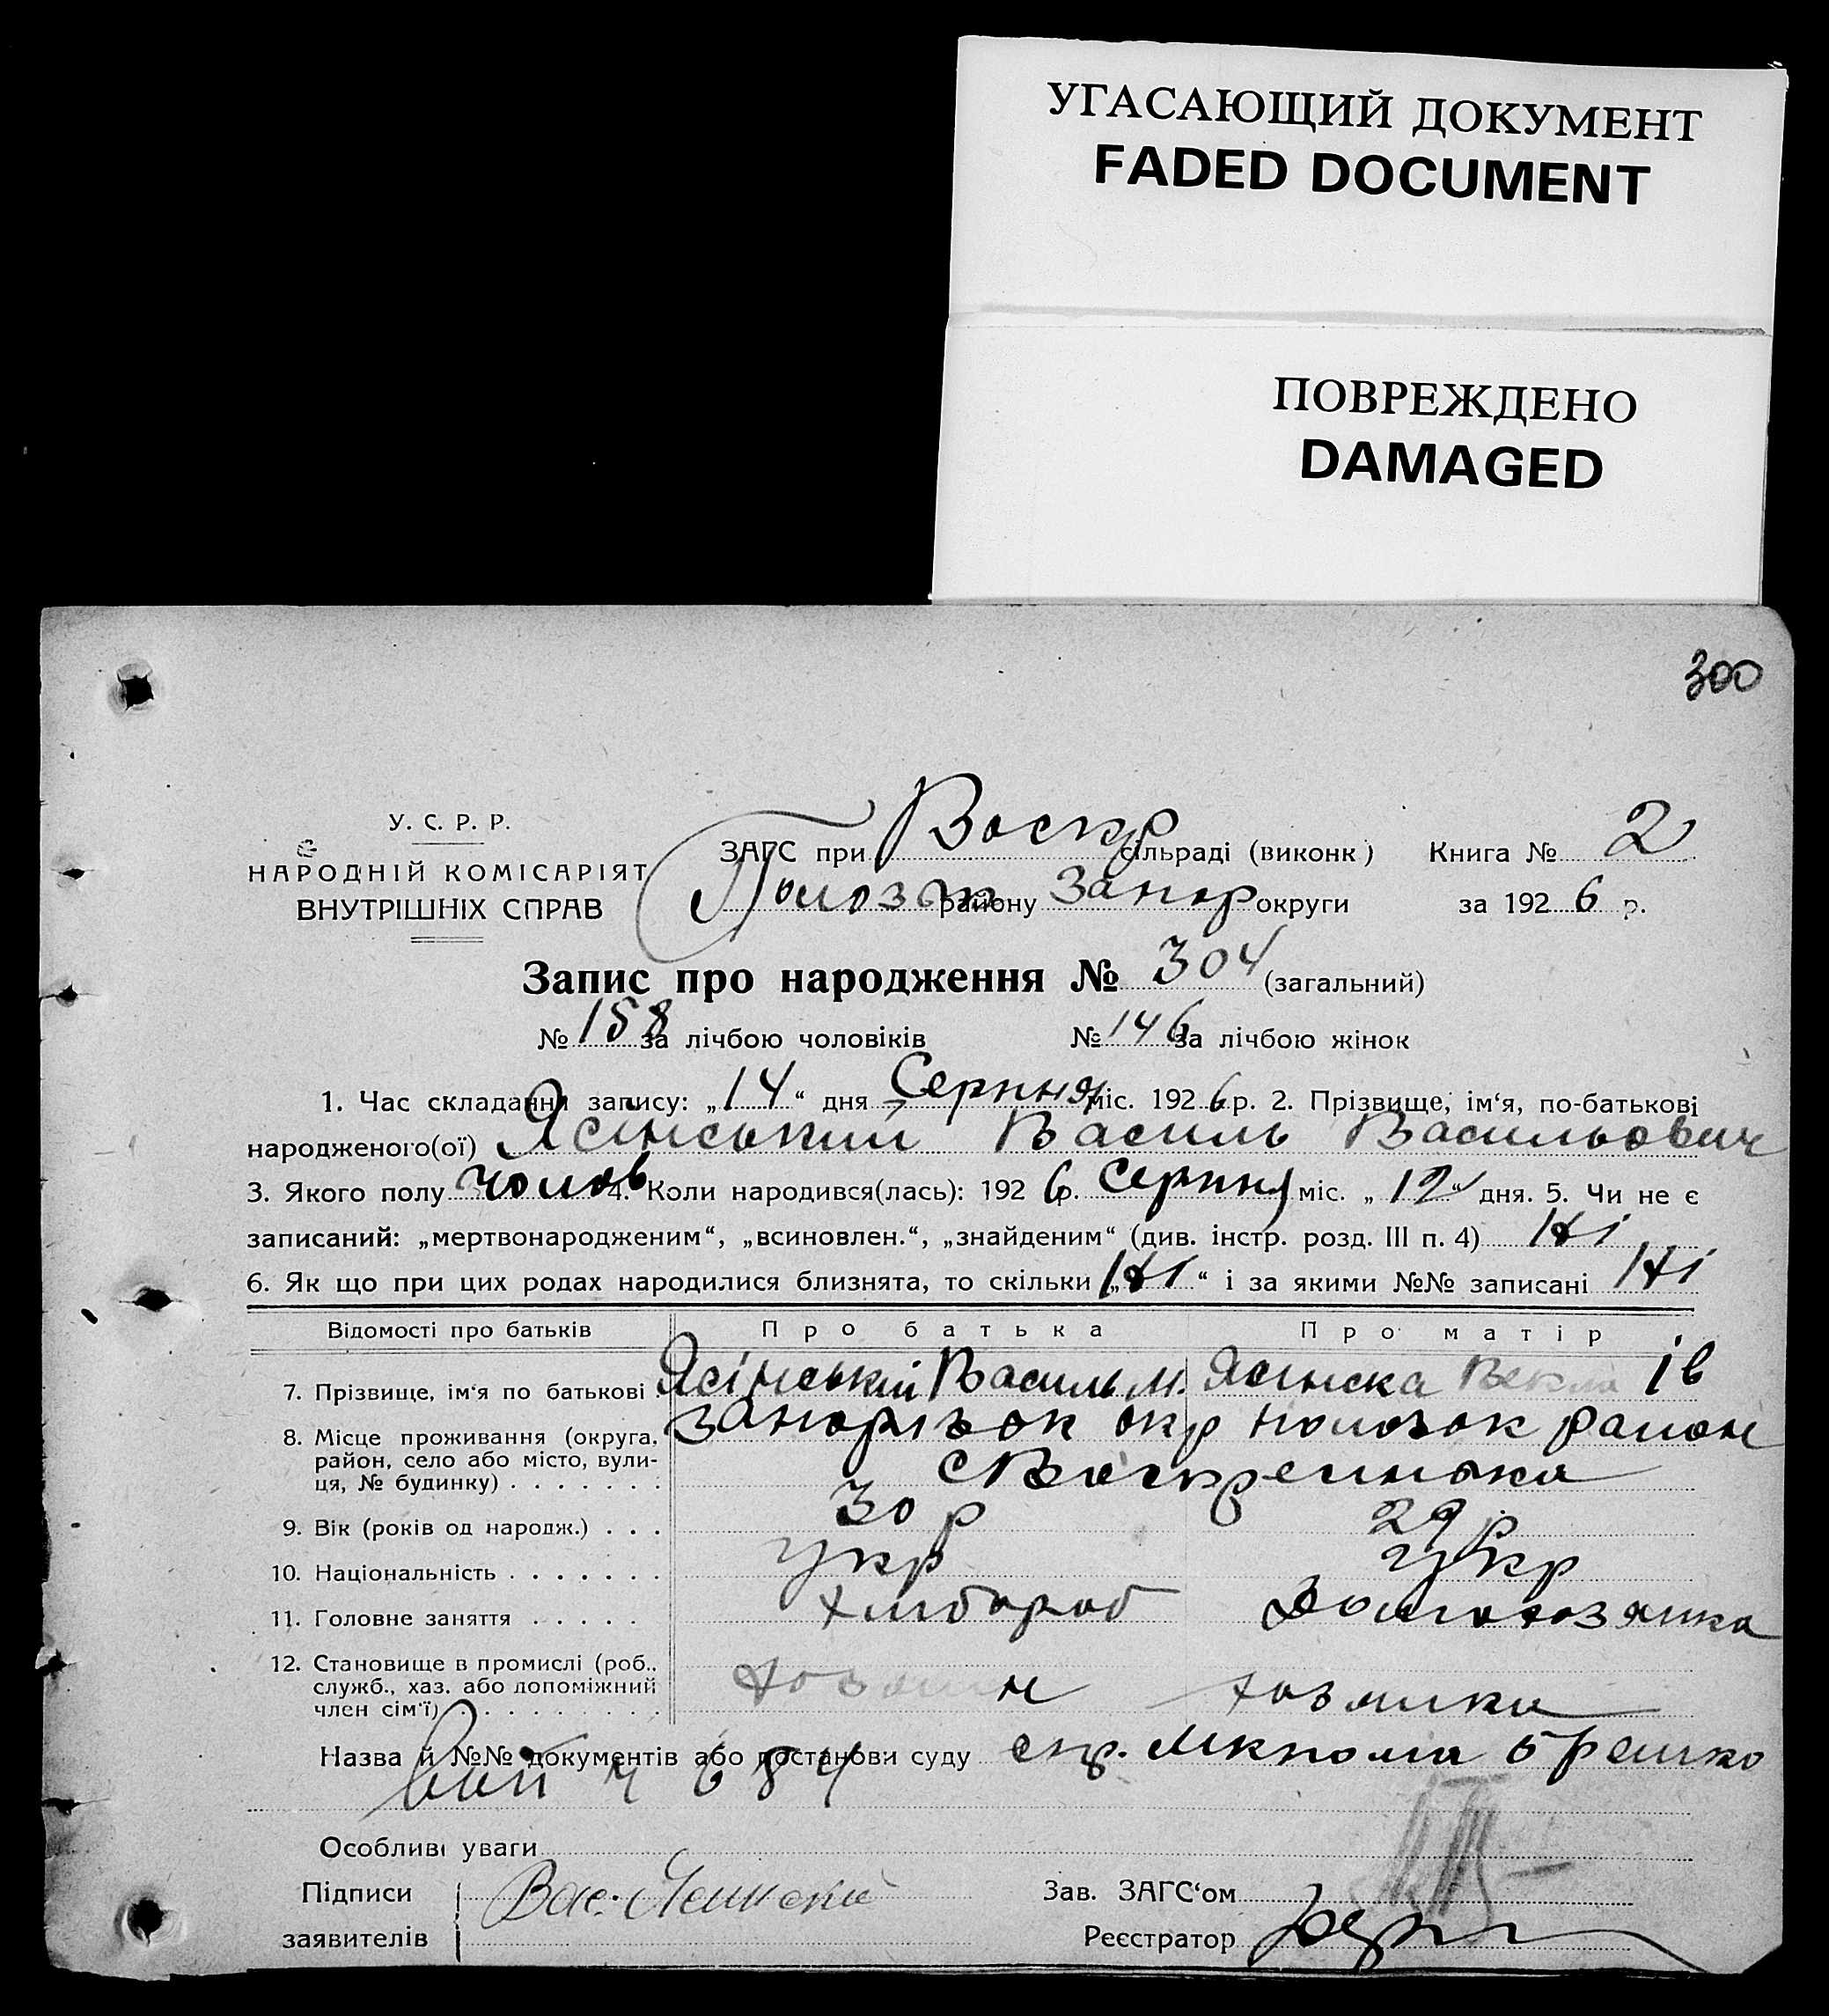 УГАСАЮЩИЙ ДОКУМЕНТ
FADED DOCUMENT
ПОВРЕЖДЕНО
DAMAGED
300
У. С. Р. Р.
НАРОДНІЙ КОМІСАРІЯТ
ВНУТРІШНІХ СПРАВ
ЗАГС при Воскр сільраді (виконк) Книга № 2
району Запор округи за 1926 р.
Запис про народження № 304 (загальний)
№ 158 за лічбою чоловіків № 146 за лічбою жінок
1. Час складання запису: „14“ дня Серпня міс. 1926 р. 2. Прізвище, ім‘я, по-батькові
народженого(ої) Ясінський Василь Васильович
3. Якого полу чолов 4. Коли народився(лась): 1926 р. серпня міс. „12“ дня. 5. Чи не є
записаний: „мертвонародженим“, „всиновлен.“, „знайденим“ (див. інстр. розд. III п. 4) Ні
6. Як що при цих родах народилися близнята, то скільки „Ні“ і за якими №№ записані Ні
Відомості про батьків Про батька Про матір
7. Прізвище, ім‘я по батькові Ясінський Василь М. Ясинска Векла Ів
8. Місце проживання (округа, район, село або місто, вулиця, № будинку) Запорізьк окр Пологок район
с Воскресинька
9. Вік (років од народж.) 30 р 29 р
10. Національність Укр Укр
11. Головне заняття Хлібороб Домохозяика
12. Становище в промислі (роб., служб., хаз. або допоміжний член сім‘ї) хозяин хозяика
Назва й №№ документів або постанови суду
Особливі уваги
Підписи заявителів Вас. Ясински
Зав. ЗАГС‘ом
Реєстратор